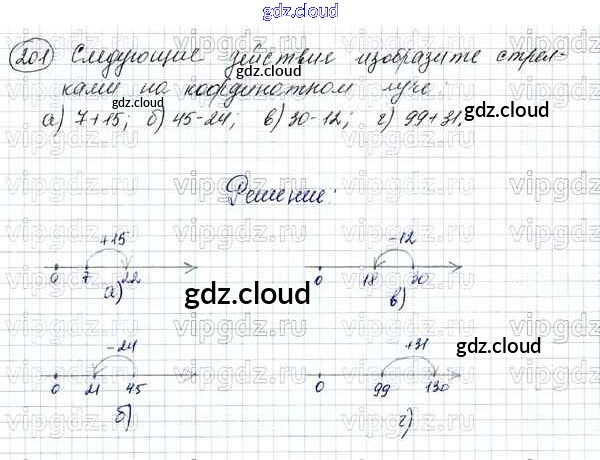 gdz.cloud
201 Следующие действие изобразите стрел-
ками на координатном луче.
gdz.cloud gdz.cloud
а) 7+15; б) 45-24; в) 30-12; г) 99+31.
Решение:
+15 -12
0 7 22 0 18 30
а) gdz.cloud в) gdz.cloud
-24 +31 gdz.cloud
0 21 45 0 99 130
б) г)
vipgdz.ru